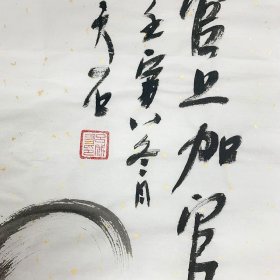 官上加官
壬寅冬月
天石